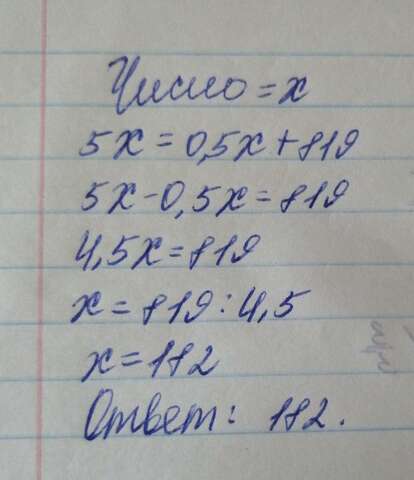 Число = x
5x = 0,5x + 819
5x - 0,5x = 819
4,5x = 819
x = 819 : 4,5
x = 182
Ответ: 182.